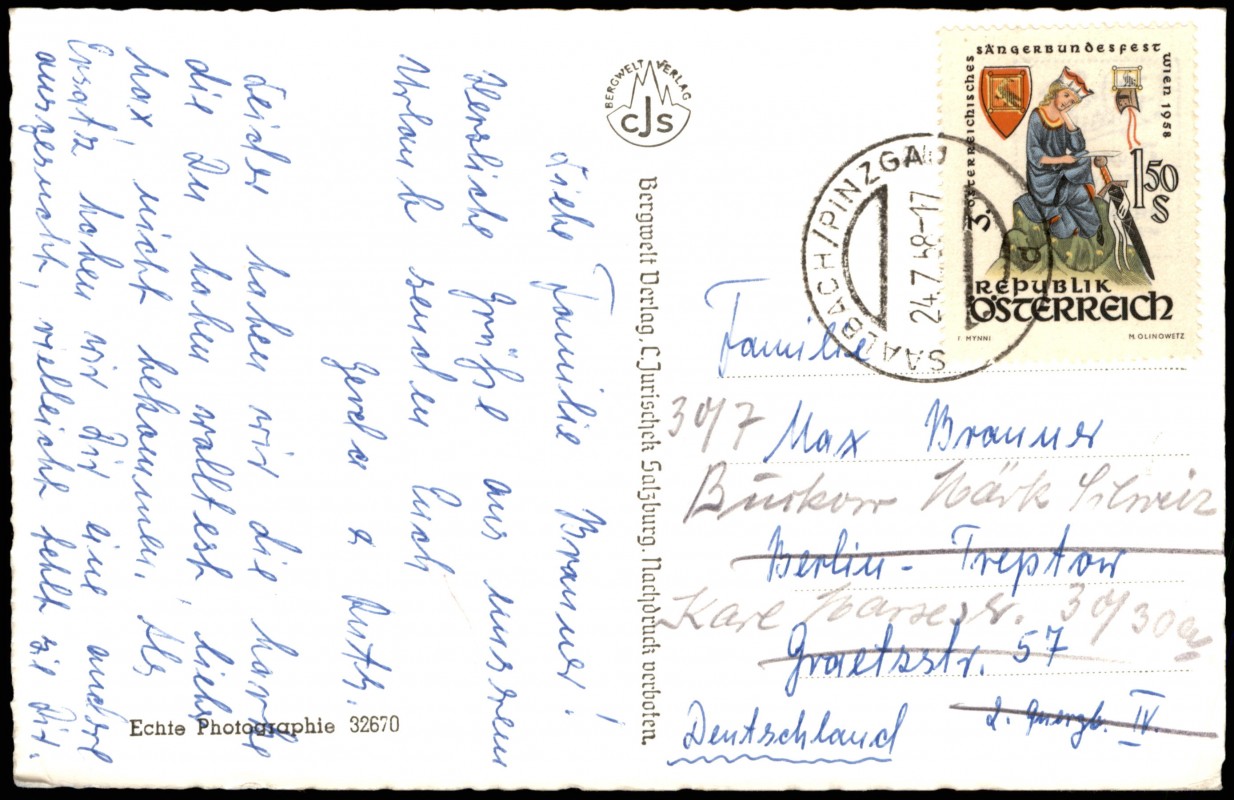 Liebe Familie Brauner!
Herzliche Grüße aus unsrem
Urlaub senden Euch
Gerda & Ruth.
Leider haben wir die Karte
die Du haben wolltest, lieber
Max, nicht bekommen. Als
Ersatz haben wir Dir eine andre
ausgesucht, vielleicht fehlt sie Dir.
Echte Photographie 32670
BERGWELT VERLAG
CJS
Bergwelt Verlag, C. Jurischek Salzburg. Nachdruck verboten.
3. ÖSTERREICHISCHES SÄNGERBUNDESFEST WIEN 1958
1.50 S
REPUBLIK
ÖSTERREICH
M. OLINOWETZ
SAALBACH/PINZGAU
24.7.58-17
d
Familie
30/7 Max Brauner
Buckow Märk Schweiz
Berlin - Treptow
Karl Marxstr. 30/30a
Graetzstr. 57
2. Quergb. IV.
Deutschland